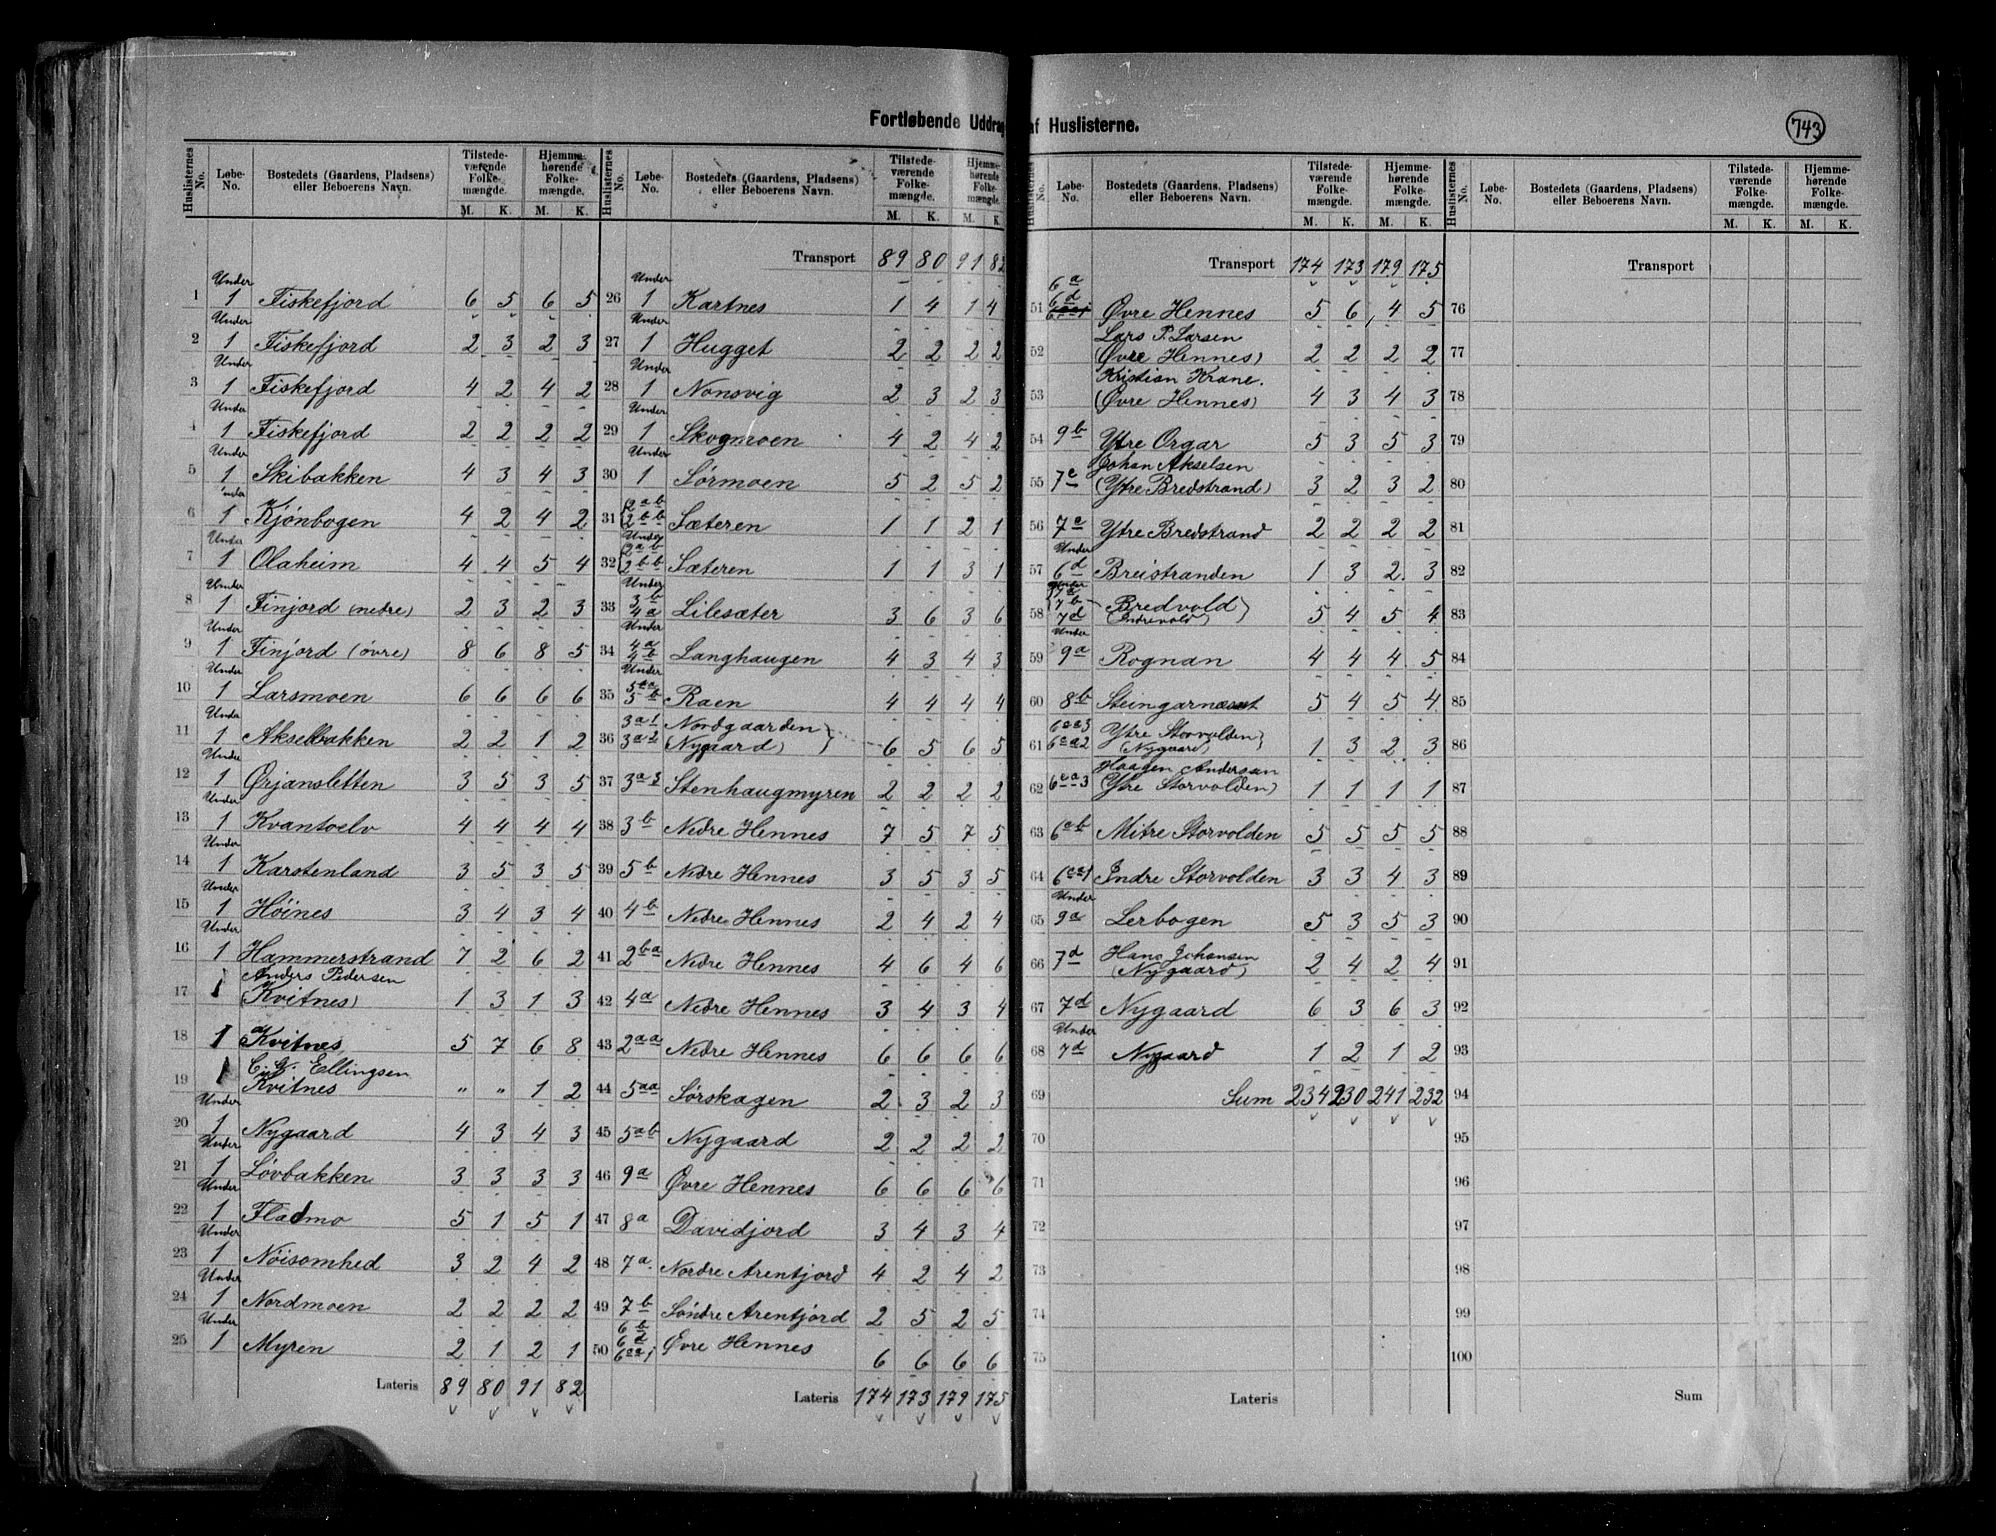 Fortløbende Uddrag af Huslisterne.
743
Huslisternes No. | Løbe-No. | Bostedets (Gaardens, Pladsens) eller Beboerens Navn. | Tilstedeværende Folkemængde. M. K. | Hjemmehørende Folkemængde. M. K.
1 Under 1 Fiskefjord 6 5 6 5
2 Under 1 Fiskefjord 2 3 2 3
3 Under 1 Fiskefjord 4 2 4 2
4 Under 1 Fiskefjord 2 2 2 2
5 Under 1 Skibakken 4 3 4 3
6 Under 1 Kjønbogen 4 2 4 2
7 Under 1 Olaheim 4 4 5 4
8 Under 1 Finjord (nedre) 2 3 2 3
9 Under 1 Finjord (øvre) 8 6 8 5
10 Under 1 Larsmoen 6 6 6 6
11 Under 1 Akselbakken 2 2 1 2
12 Under 1 Ørjansletten 3 5 3 5
13 Under 1 Kvantoelv 4 4 4 4
14 Under 1 Karstenland 3 5 3 5
15 Under 1 Høines 3 4 3 4
16 Under 1 Hammerstrand 7 2 6 2
17 1 Anders Pedersen
(Kvitnes) 1 3 1 3
18 1 Kvitnes 5 7 6 8
19 1 Ellingsen
Kvitnes " " 1 2
20 Under 1 Nygaard 4 3 4 3
21 Under 1 Løvbakken 3 3 3 3
22 Under 1 Fladmo 5 1 5 1
23 Under 1 Nøisomhed 3 2 4 2
24 Under 1 Nordmoen 2 2 2 2
25 Under 1 Myren 2 1 2 1
Lateris 89 80 91 82
Huslisternes No. | Løbe-No. | Bostedets (Gaardens, Pladsens) eller Beboerens Navn. | Tilstedeværende Folkemængde. M. K. | Hjemmehørende Folkemængde. M. K.
Transport 89 80 91 82
26 Under 1 Kartnes 1 4 1 4
27 Under 1 Hugget 2 2 2 2
28 Under 1 Nonsvig 2 3 2 3
29 Under 1 Skogmoen 4 2 4 2
30 Under 1 Sørmoen 5 2 5 2
31 2ab 2bb Sæteren 1 1 2 1
32 Under 2ab 2bb Sæteren 1 1 3 1
33 Under 3b 4a Lilesæter 3 6 3 6
34 Under 4a 4b Langhaugen 4 3 4 3
35 Under 5aa 5b Raen 4 4 4 4
36 3a1 3a2 Nordgaarden
(Nygaard) 6 5 6 5
37 3a3 Stenhaugmyren 2 2 2 2
38 3b Nedre Hennes 7 5 7 5
39 5b Nedre Hennes 3 5 3 5
40 4b Nedre Hennes 2 4 2 4
41 2ba Nedre Hennes 4 6 4 6
42 4a Nedre Hennes 3 4 3 4
43 2aa Nedre Hennes 6 6 6 6
44 5aa Sørskagen 2 3 2 3
45 5ab Nygaard 2 2 2 2
46 9a Øvre Hennes 6 6 6 6
47 8a Davidjord 3 4 3 4
48 7a Nordre Arentjord 4 2 4 2
49 7b Søndre Arentjord 2 5 2 5
50 6b 6d 6aa1 Øvre Hennes 6 6 6 6
Lateris 174 173 179 175
Huslisternes No. | Løbe-No. | Bostedets (Gaardens, Pladsens) eller Beboerens Navn. | Tilstedeværende Folkemængde. M. K. | Hjemmehørende Folkemængde. M. K.
Transport 174 173 179 175
51 6a 6d Øvre Hennes 5 6 4 5
52 Lars P. Larsen
(Øvre Hennes) 2 2 2 2
53 Kristian Krane.
(Øvre Hennes) 4 3 4 3
54 9b Ytre Orgar 5 3 5 3
55 7c Johan Akselsen
(Ytre Bredstrand) 3 2 3 2
56 7c Ytre Bredstrand 2 2 2 2
57 Under 6d Breistranden 1 3 2 3
58 Under 7a 7b 7d Bredvold
(Indrevold) 5 4 5 4
59 Under 9a Rognan 4 4 4 5
60 8b Steingarnæset 5 4 5 4
61 6aa3 6aa2 Ytre Storvolden
(Nygaard) 1 3 2 3
62 6aa3 Haagen Andersen
(Ytre Storvolden) 1 1 1 1
63 6ab Mitre Storvolden 5 5 5 5
64 6aa1 Indre Storvolden 3 3 4 3
65 Under 9a Lerbogen 5 3 5 3
66 7d Hans Johansen
(Nygaard) 2 4 2 4
67 7d Nygaard 6 3 6 3
68 Under 7d Nygaard 1 2 1 2
69 Sum 234 230 241 232
70
71
72
73
74
75
Lateris
Huslisternes No. | Løbe-No. | Bostedets (Gaardens, Pladsens) eller Beboerens Navn. | Tilstedeværende Folkemængde. M. K. | Hjemmehørende Folkemængde. M. K.
Transport
76
77
78
79
80
81
82
83
84
85
86
87
88
89
90
91
92
93
94
95
96
97
98
99
100
Sum